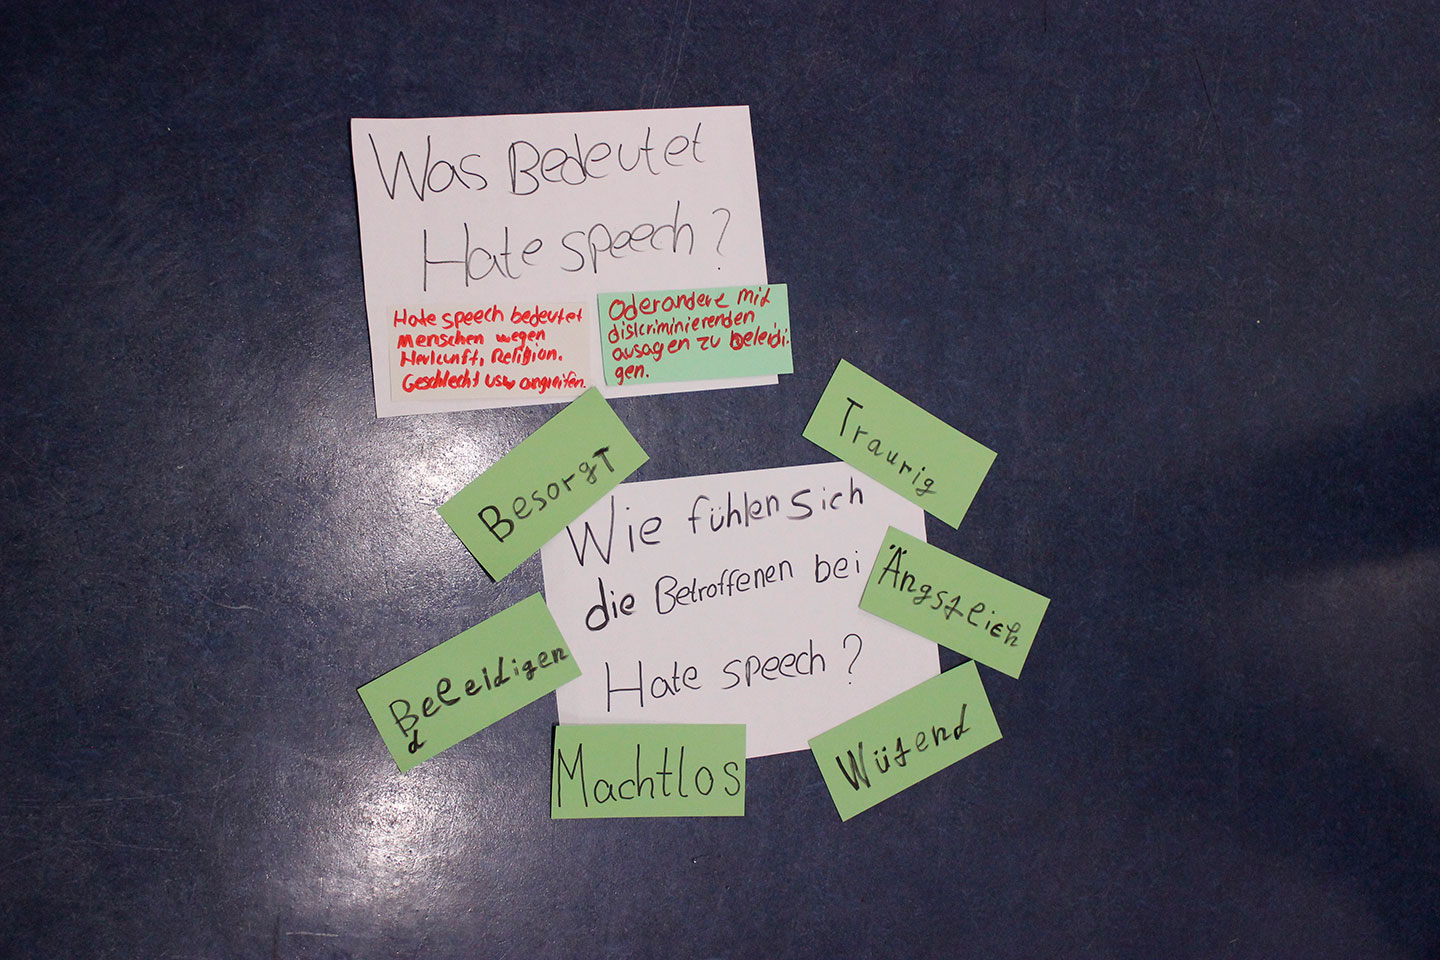 Was Bedeutet
Hate speech?
Hate speech bedeutet
menschen wegen
Herkunft, Religion.
Geschlecht usw angreifen.
Oder andere mit
diskriminierenden
ausagen zu beleidi-
gen.
Besorgt
Traurig
Wie fühlen sich
die Betroffenen bei
Hate speech?
Ängstlich
Beleidigen
d
Machtlos
Wütend